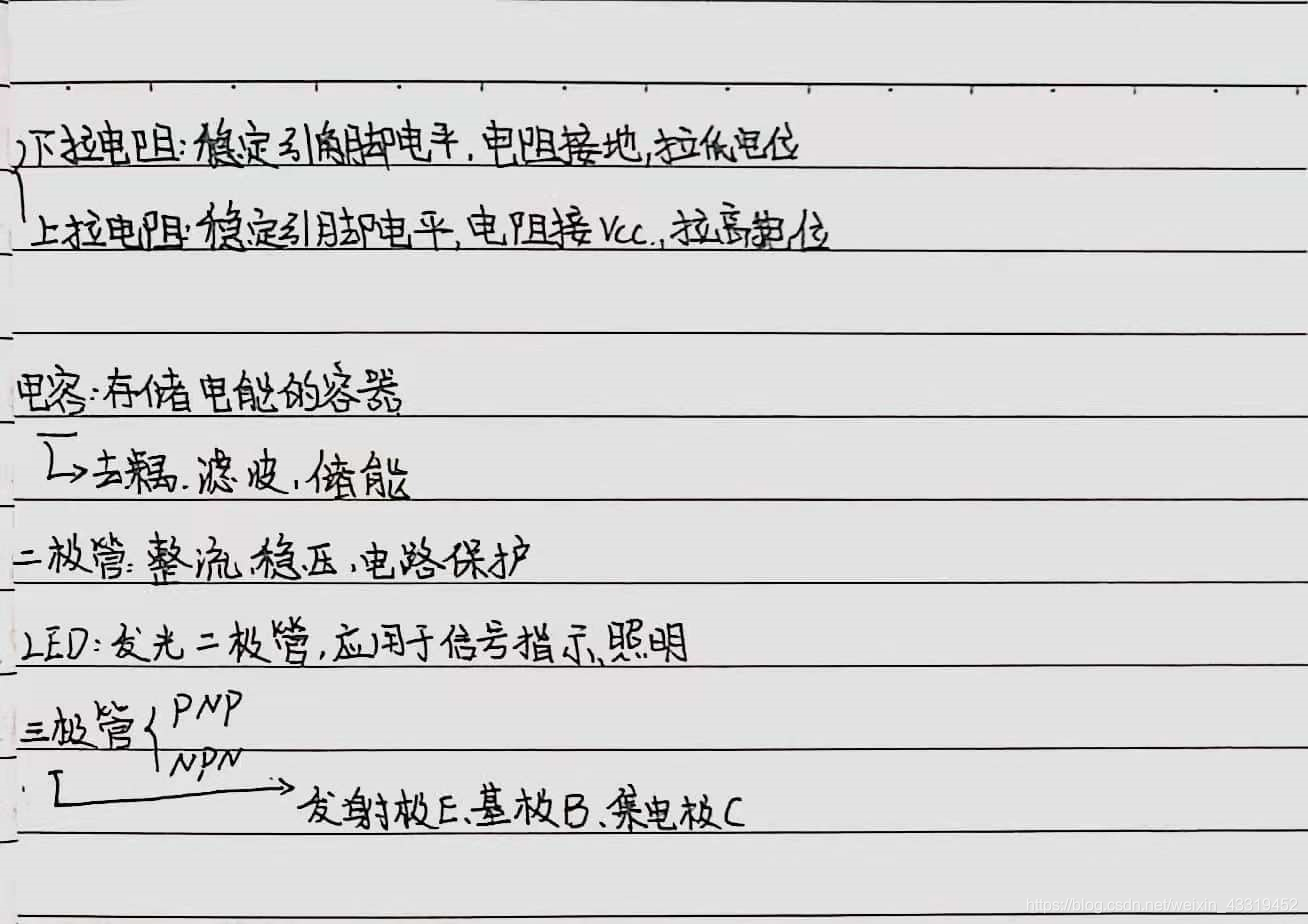 下拉电阻:稳定引脚电平,电阻接地,拉低电位
上拉电阻:稳定引脚电平,电阻接Vcc,拉高电位
电容:存储电能的容器
去耦、滤波、储能
二极管:整流、稳压、电路保护
LED:发光二极管,应用于信号指示、照明
三极管{PNP
NPN
发射极E、基极B、集电极C
https://blog.csdn.net/weixin_43319452